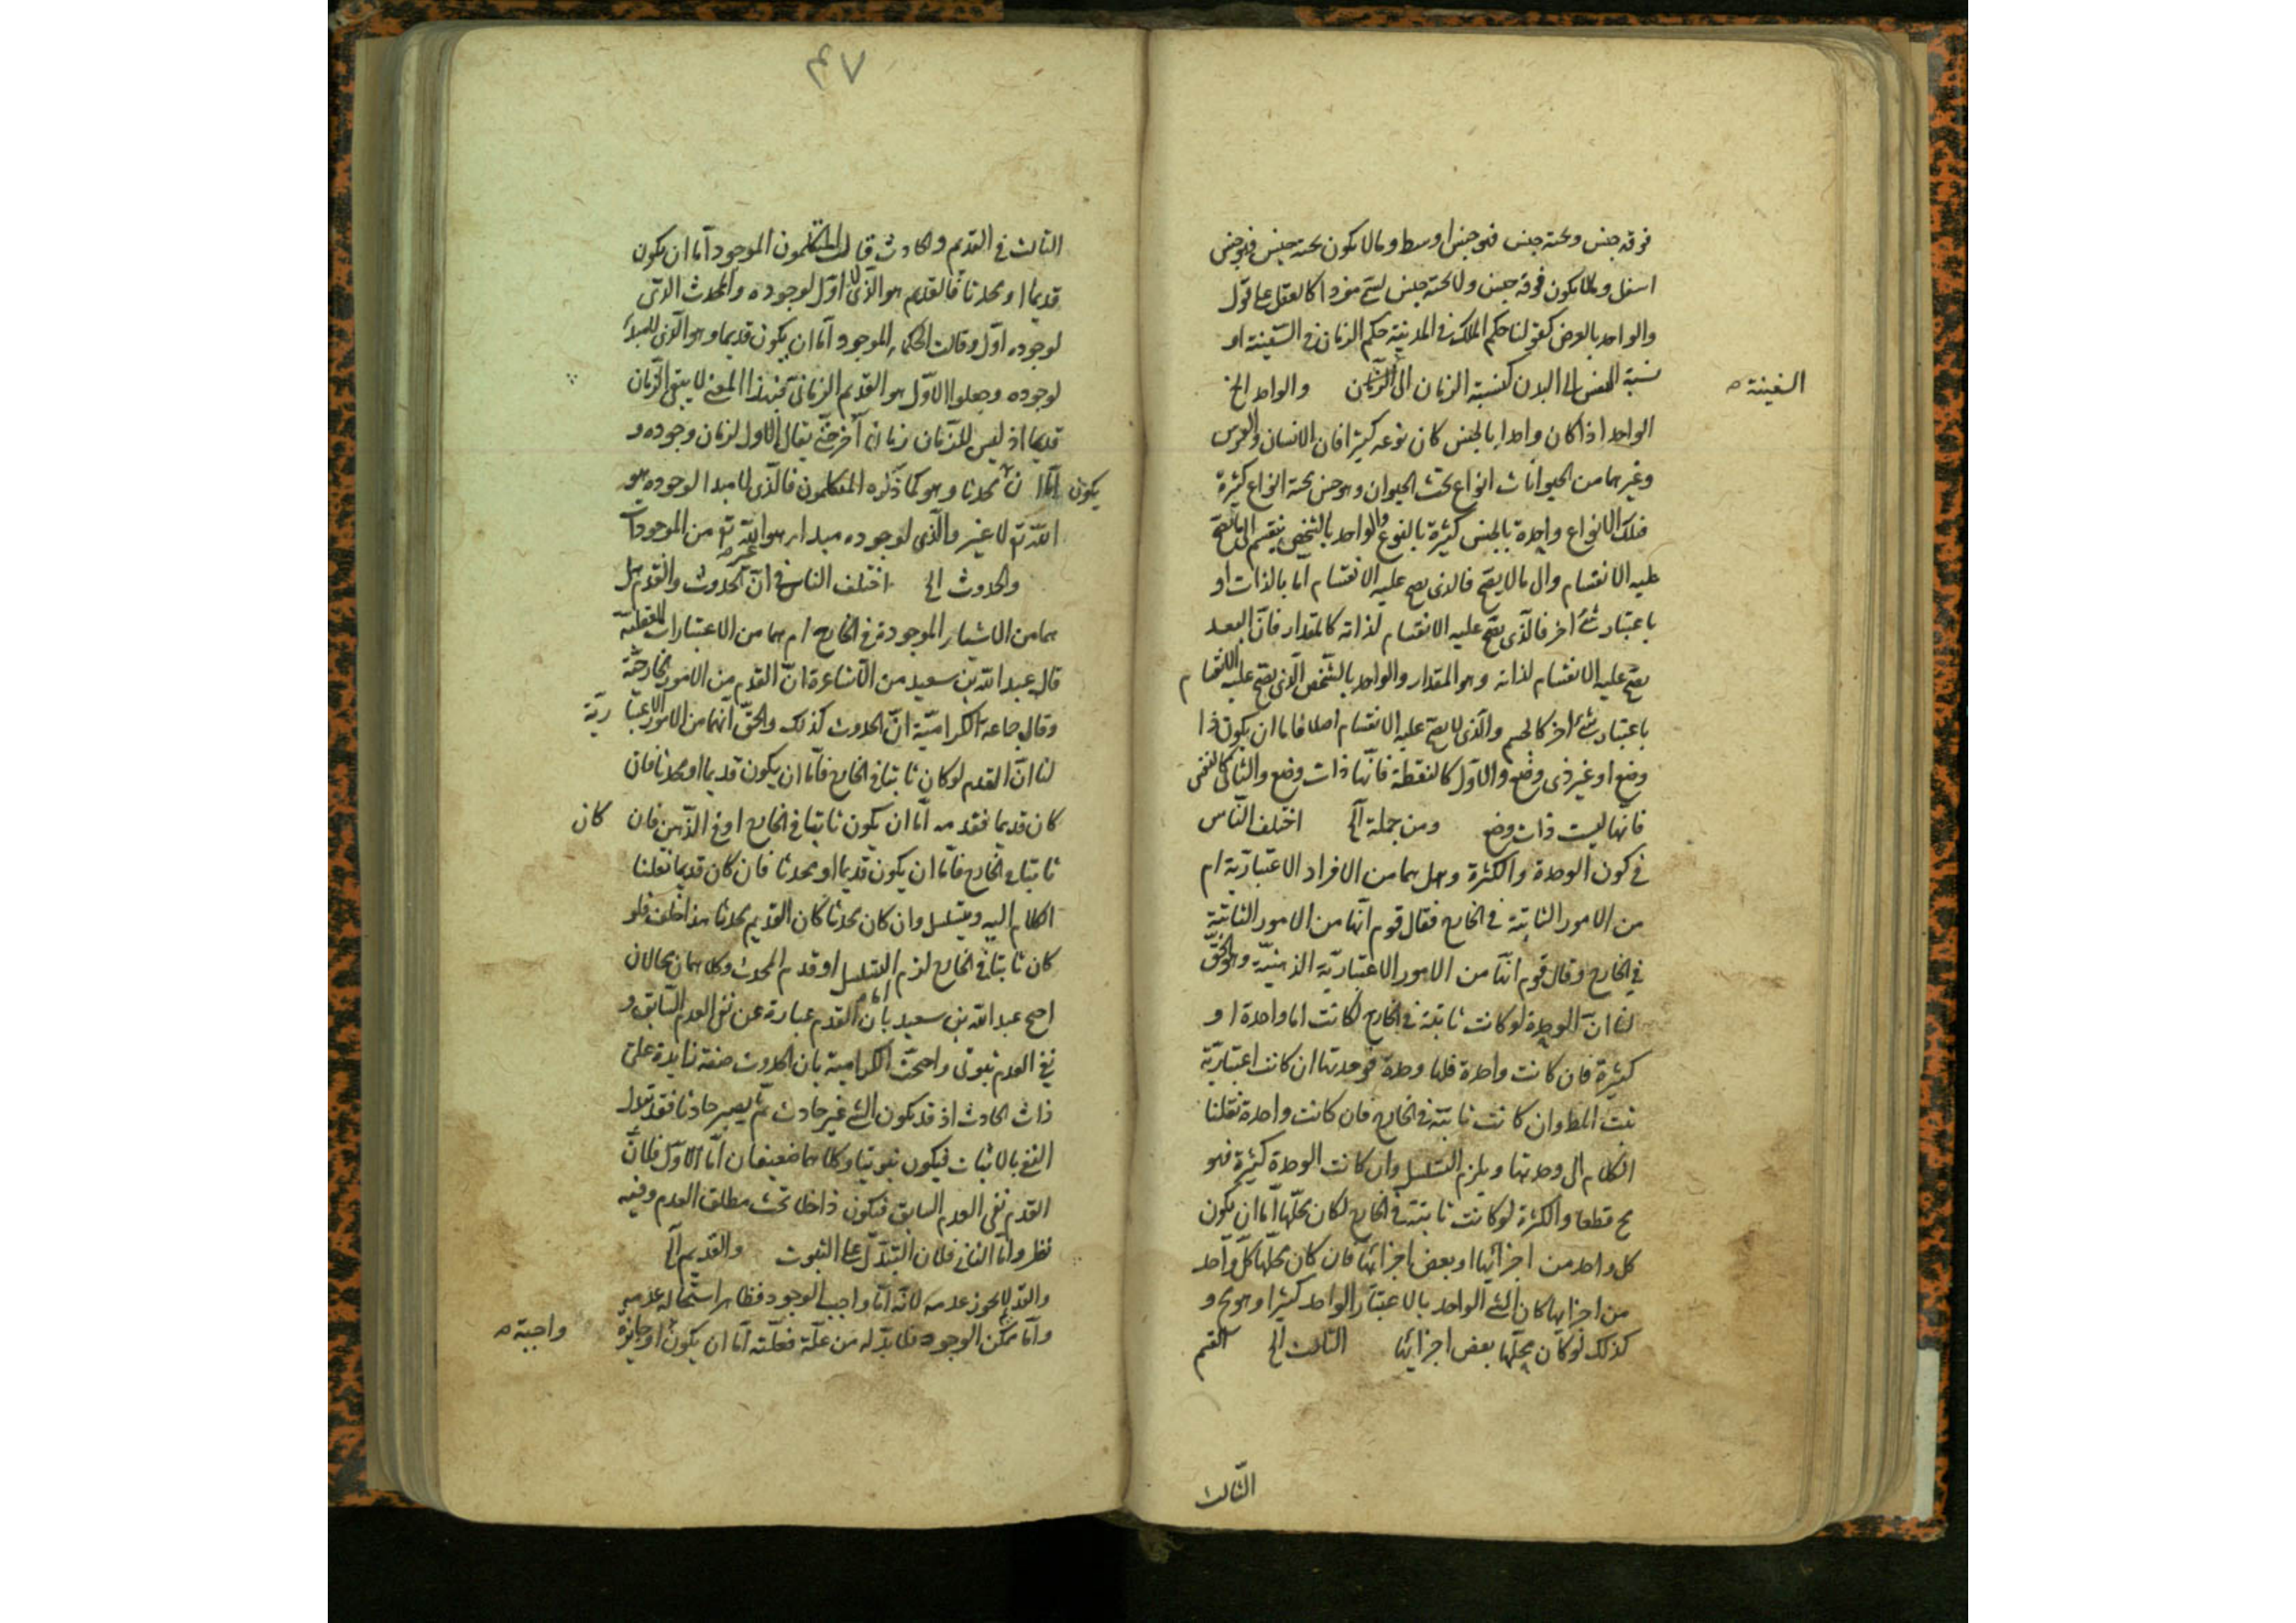 فوقه جنس وتحته جنس فهو جنس اوسط وما لا يكون تحته جنس فهو جنس
اسفل وما لا يكون فوقه جنس ولا تحته جنس يسمى مفردا كالعقل على قول
والواحد بالعرض كقولنا حكم الملك في المدينة حكم الربان في السفينة او
نسبة النفس الى البدن كنسبة الربان الى والواحد الخ
السفينة صح
الواحد اذا كان واحدا بالجنس كان نوعه كثيرا فان الانسان والفرس
وغيرهما من الحيوانات انواع تحت الحيوان وهو جنس تحته انواع كثيرة
فتلك الانواع واحدة بالجنس كثيرة بالنوع والواحد بالشخص ينقسم الى ما يصح
عليه الانقسام والى ما لا يصح فالذى يصح عليه الانقسام اما بالذات او
باعتبار شئ اخر فالذى يصح عليه الانقسام لذاته كالمقدار فان البعد
يصح عليه الانقسام لذاته وهو المقدار والواحد بالشخص الذى يصح عليه الانقسام
باعتبار شئ اخر كالجسم والذى لا يصح عليه الانقسام اصلا فاما ان يكون ذا
وضع او غير ذى وضع والاول كالنقطة فانها ذات وضع والثانى كالنفس
فانها ليست ذات وضع ومن جملة الخ اختلف الناس
فى كون الوحدة والكثرة وهل هما من الافراد الاعتبارية ام
من الامور الثابتة فى الخارج فقال قوم انها من الامور الثابتة
فى الخارج وقال قوم انها من الامور الاعتبارية الذهنية وهو الحق
لنا ان الوحدة لو كانت ثابتة فى الخارج لكانت اما واحدة او
كثيرة فان كانت واحدة فلها وحدة فوحدتها ان كانت اعتبارية
ثبت المط وان كانت ثابتة فى الخارج فان كانت واحدة نقلنا
الكلام الى وحدتها ويلزم التسلسل وان كانت الوحدة كثيرة فهو
مح قطعا والكثرة لو كانت ثابتة فى الخارج لكان محلها اما ان يكون
كل واحد من اجزائها او بعض اجزائها فان كان محلها كل واحد
من اجزائها كان الشئ الواحد بالاعتبار الواحد كثيرا وهو مح و
كذلك لو كان محلها بعض اجزائها الثالث الخ القسم
الثالث
٤٨
الثالث فى القديم والحادث قالت المتكلمون الموجود اما ان يكون
قديما او محدثا فالقديم هو الذى لا اول لوجوده والمحدث الذى
لوجوده اول وقالت الحكماء الموجود اما ان يكون قديما وهو الذى لا مبدأ
لوجوده وجعلوا الاول هو القديم الزمانى فبهذا المعنى لا يبقى الزمان
قديما اذ ليس للزمان زمان آخر حتى يقال لا اول لزمان وجوده و
اما ان يكون محدثا وهو كما ذكره المتكلمون فالذى لا مبدا لوجوده هو
الله تع لا غير والذى لوجوده مبدا هو غير الله تع من الموجودات
والحدوث الخ اختلف الناس فى ان الحدوث والقدم هل
هما من الاشياء الموجودة فى الخارج ام هما من الاعتبارات العقلية
قال عبد الله بن سعيد من الاشاعرة ان القدم من الامور الخارجية
وقال جماعة الكرامية ان الحدوث كذلك والحق انهما من الامور الاعتبارية
لنا ان القدم لو كان ثابتا فى الخارج فاما ان يكون قديما او محدثا فان
كان قديما فقدمه اما ان يكون ثابتا فى الخارج او فى الذهن فان كان
ثابتا فى الخارج فاما ان يكون قديما او محدثا فان كان قديما نقلنا
الكلام اليه ويتسلسل وان كان محدثا كان القديم محدثا هذا خلف فلو
كان ثابتا فى الخارج لزم التسلسل او قدم المحدث وكلاهما محالان
احتج عبد الله بن سعيد بان القدم عبارة عن نفى العدم السابق و
نفى العدم ثبوتى واحتجت الكرامية بان الحدوث صفة زايدة على
ذات الحادث اذ قد يكون الشئ غير حادث ثم يصير حادثا فقد تبدل
النفى بالاثبات فيكون ثبوتيا وكلاهما ضعيفان اما الاول فلان
القدم نفى العدم السابق فيكون داخلا تحت مطلق العدم وفيه
نظر واما الثانى فلان التبدل على الثبوت والقديم الخ
والقديم لا يجوز عدمه لانه اما واجب الوجود فظاهر استحالة عدمه
واما ممكن الوجود فلا بد له من علة فعلته اما ان يكون او جايزة
واجبة صح